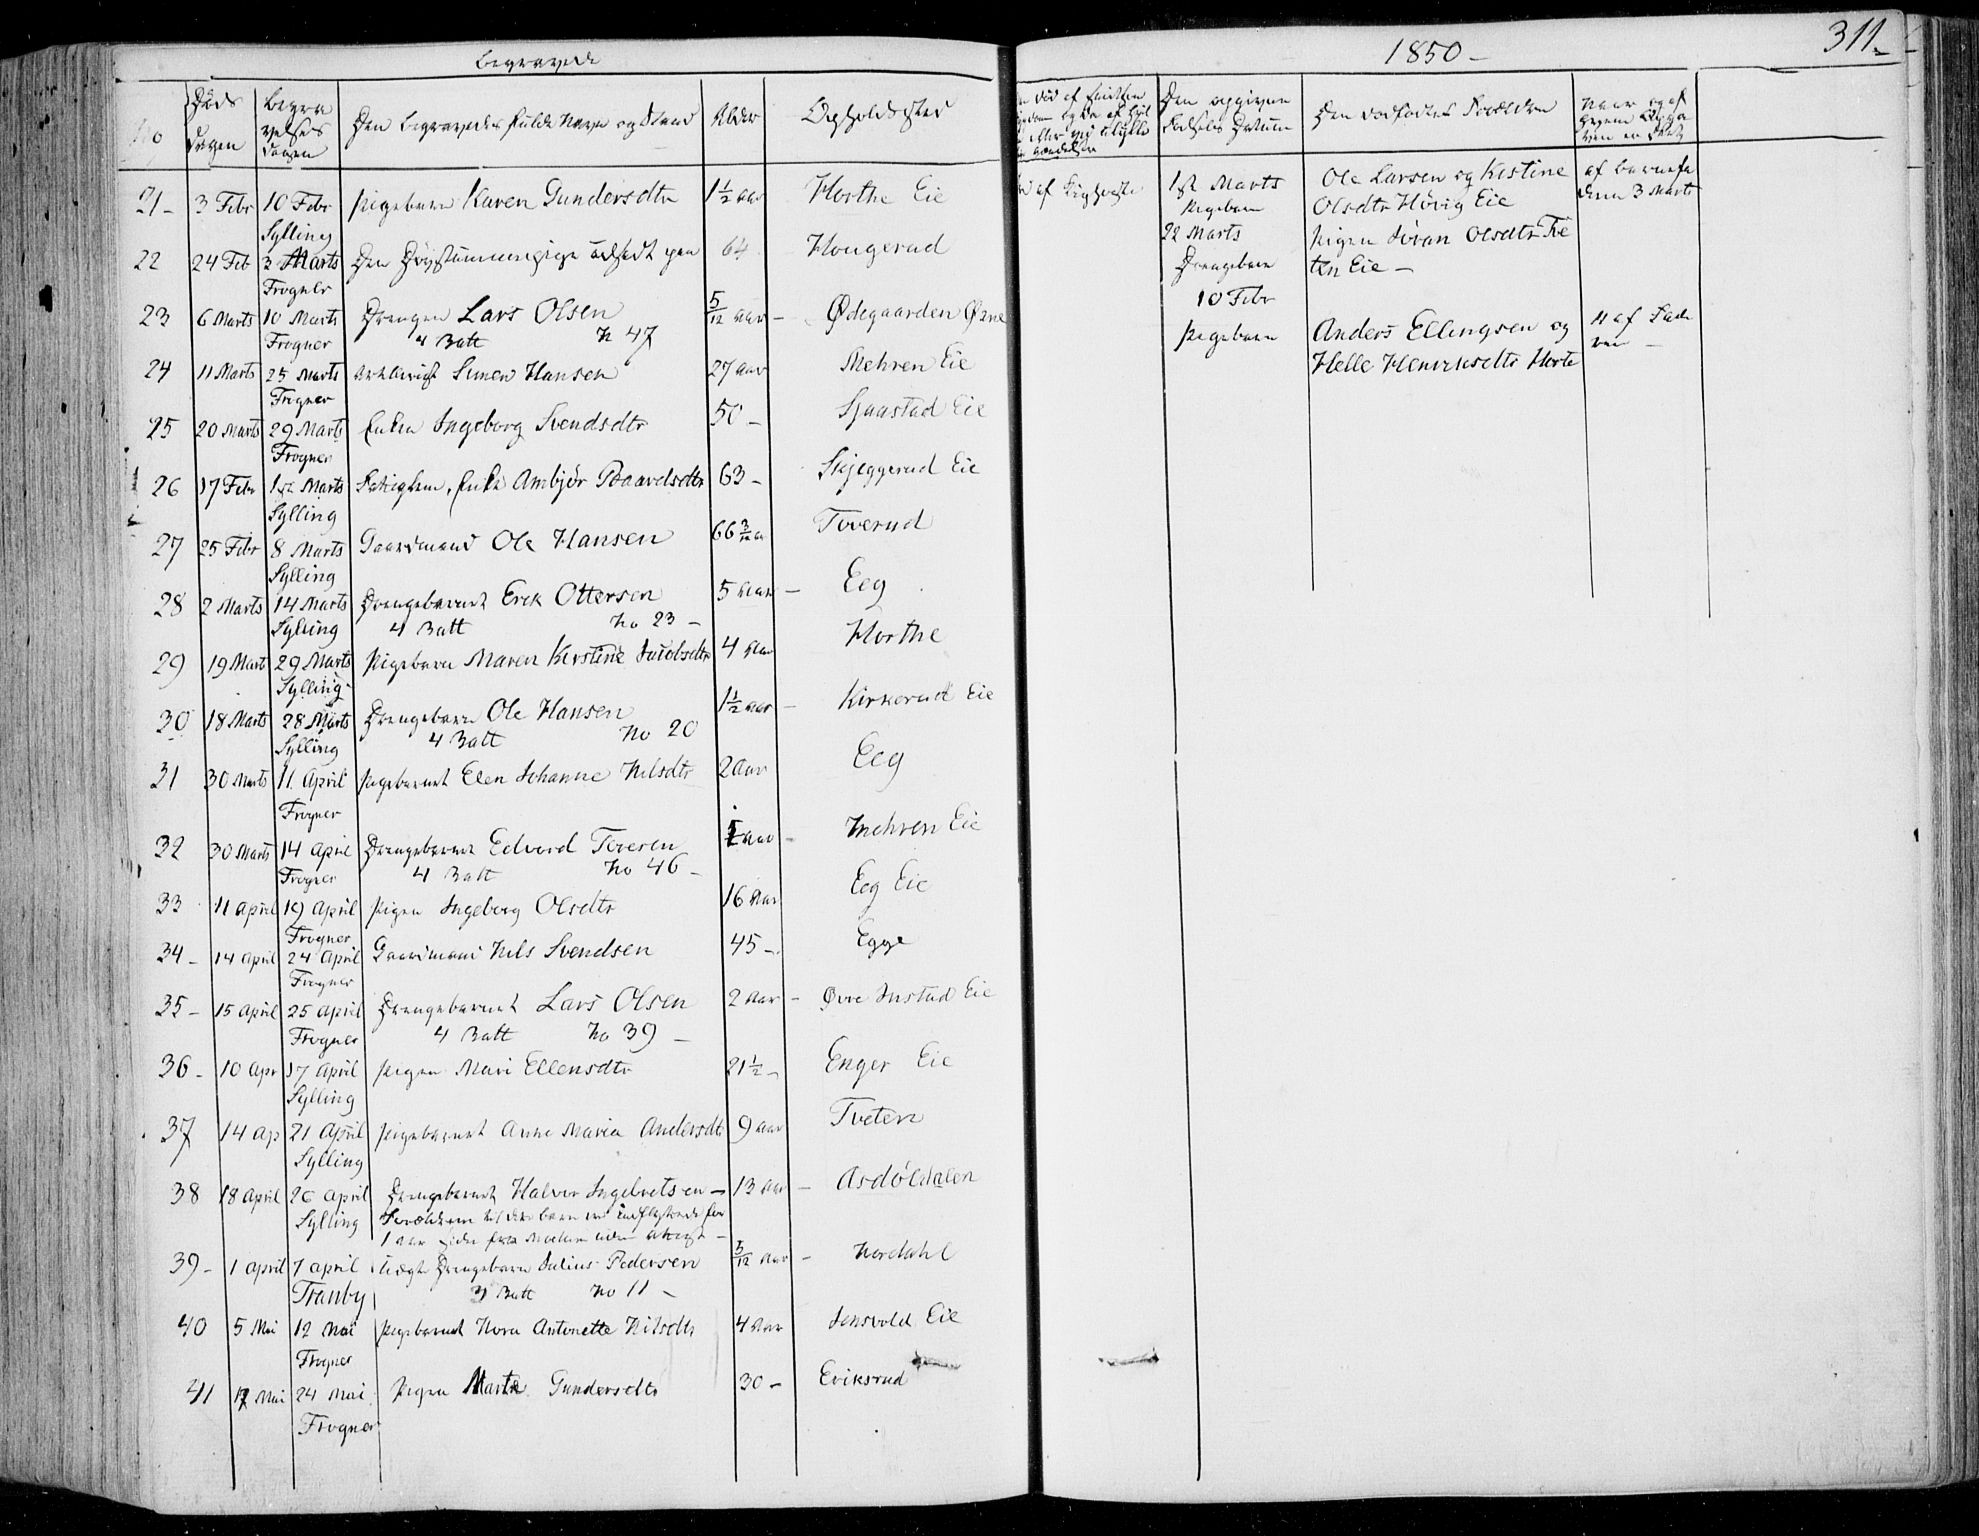 Begravede
1850 -
311 -
No
Døds Dagen
Begravelses Dagen
Den Begravedes fulde Navn og Stand
Alder
Opholdssted
21 - 3 Febr 10 Febr Pigebarn Karen Gundersdtr 1½ Aar Horthe Eie
Sylling
22 24 Feb 3 Marts 64 Hougerud
Frogner
23 6 Marts 10 Marts Drengen Lars Olsen 5/12 Aar - Ødegaarden Øvre
Frogner 4 Batt N 47
24 11 Marts 25 Marts Simen Hansen 27 Aar Mehren Eie
Frogner
25 20 Marts 29 Marts Enken Ingeborg Svendsdtr 50 - Sjaastad Eie
Frogner
26 17 Febr 1ste Marts Enke Ambjør Paavelsdtr 63 - Skjeggerud Eie
Sylling
27 25 Febr 8 Marts Gaardmand Ole Hansen 66 3/12 Aar Toverud
Sylling
28 2 Marts 14 Marts Drengebarnet Erik Ottersen 5 Aar - Eeg
Sylling 4 Batt No 23 -
29 19 Mart 29 Marts Pigebarn Maren Kirstine Jacobsdtr 4 Aar Horthe
Sylling
30 18 Marts 28 Marts Drengebarn Ole Hansen 1½ Aar - Kirkerud Eie
Sylling 4 Batt No 20
31 30 Marts 11 April Pigebarnet Elen Johanne Nilsdtr 2 Aar Eeg
Frogner
32 30 Marts 14 April Drengebarnet Edvard Iversen Aar - Mehren Eie
Frogner 4 Batt No 46 -
33 11 April 19 April Pigen Ingeborg Olsdtr 16 Aar Eeg Eie
Frogner
34 - 14 April 24 April Gaardmand Nils Svendsen 45 - Egge
Frogner
35 - 15 April 25 April Drengebarnet Lars Olsen 2 Aar - Øvre Justad Eie
Frogner 4 Batt No 39 -
36 - 10 Apr 17 April Pigen Mari Ellensdtr 21½ - Enger Eie
Sylling
37 14 Ap 21 April Pigebarnet Anne Maria Andersdtr 9 Aar Tveten
Sylling
38 18 April 26 April Drengebarnet Halvor Ingebretsen - 13 Aar - Asdøldalen
Sylling Forældrene til dette barn ere indflyttede for
1 Aar siden fra Modum uden Attest -
39 - 1 April 7 April Uægte Drengebarn Julius Pedersen 5/12 Aar - Nordahl
Tranby 3 Batt No 11 -
40 5 Mai 12 Mai Pigebarnet Nora Antonette Nilsdtr 4 Aar Jonsvold Eie
Frogner
41 17 Mai 24 Mai Pigen Marte Gundersdtr 30 - Eriksrud
Frogner
Den opgivne Fødsels Datum
Den dødfødtes Forældre
1ste Marts Ole Larsen og Kistine af barnefa
Pigebarn Olsdtr Hørig Eie deren 3 Marts
22 Marts Pigen Jøran Olsdtr Tve
Drengebarn ten Eie -
10 Febr
Pigebarn Anders Ellingsen og 11 af Fade
ren -
Helle Henriksdtr Horte